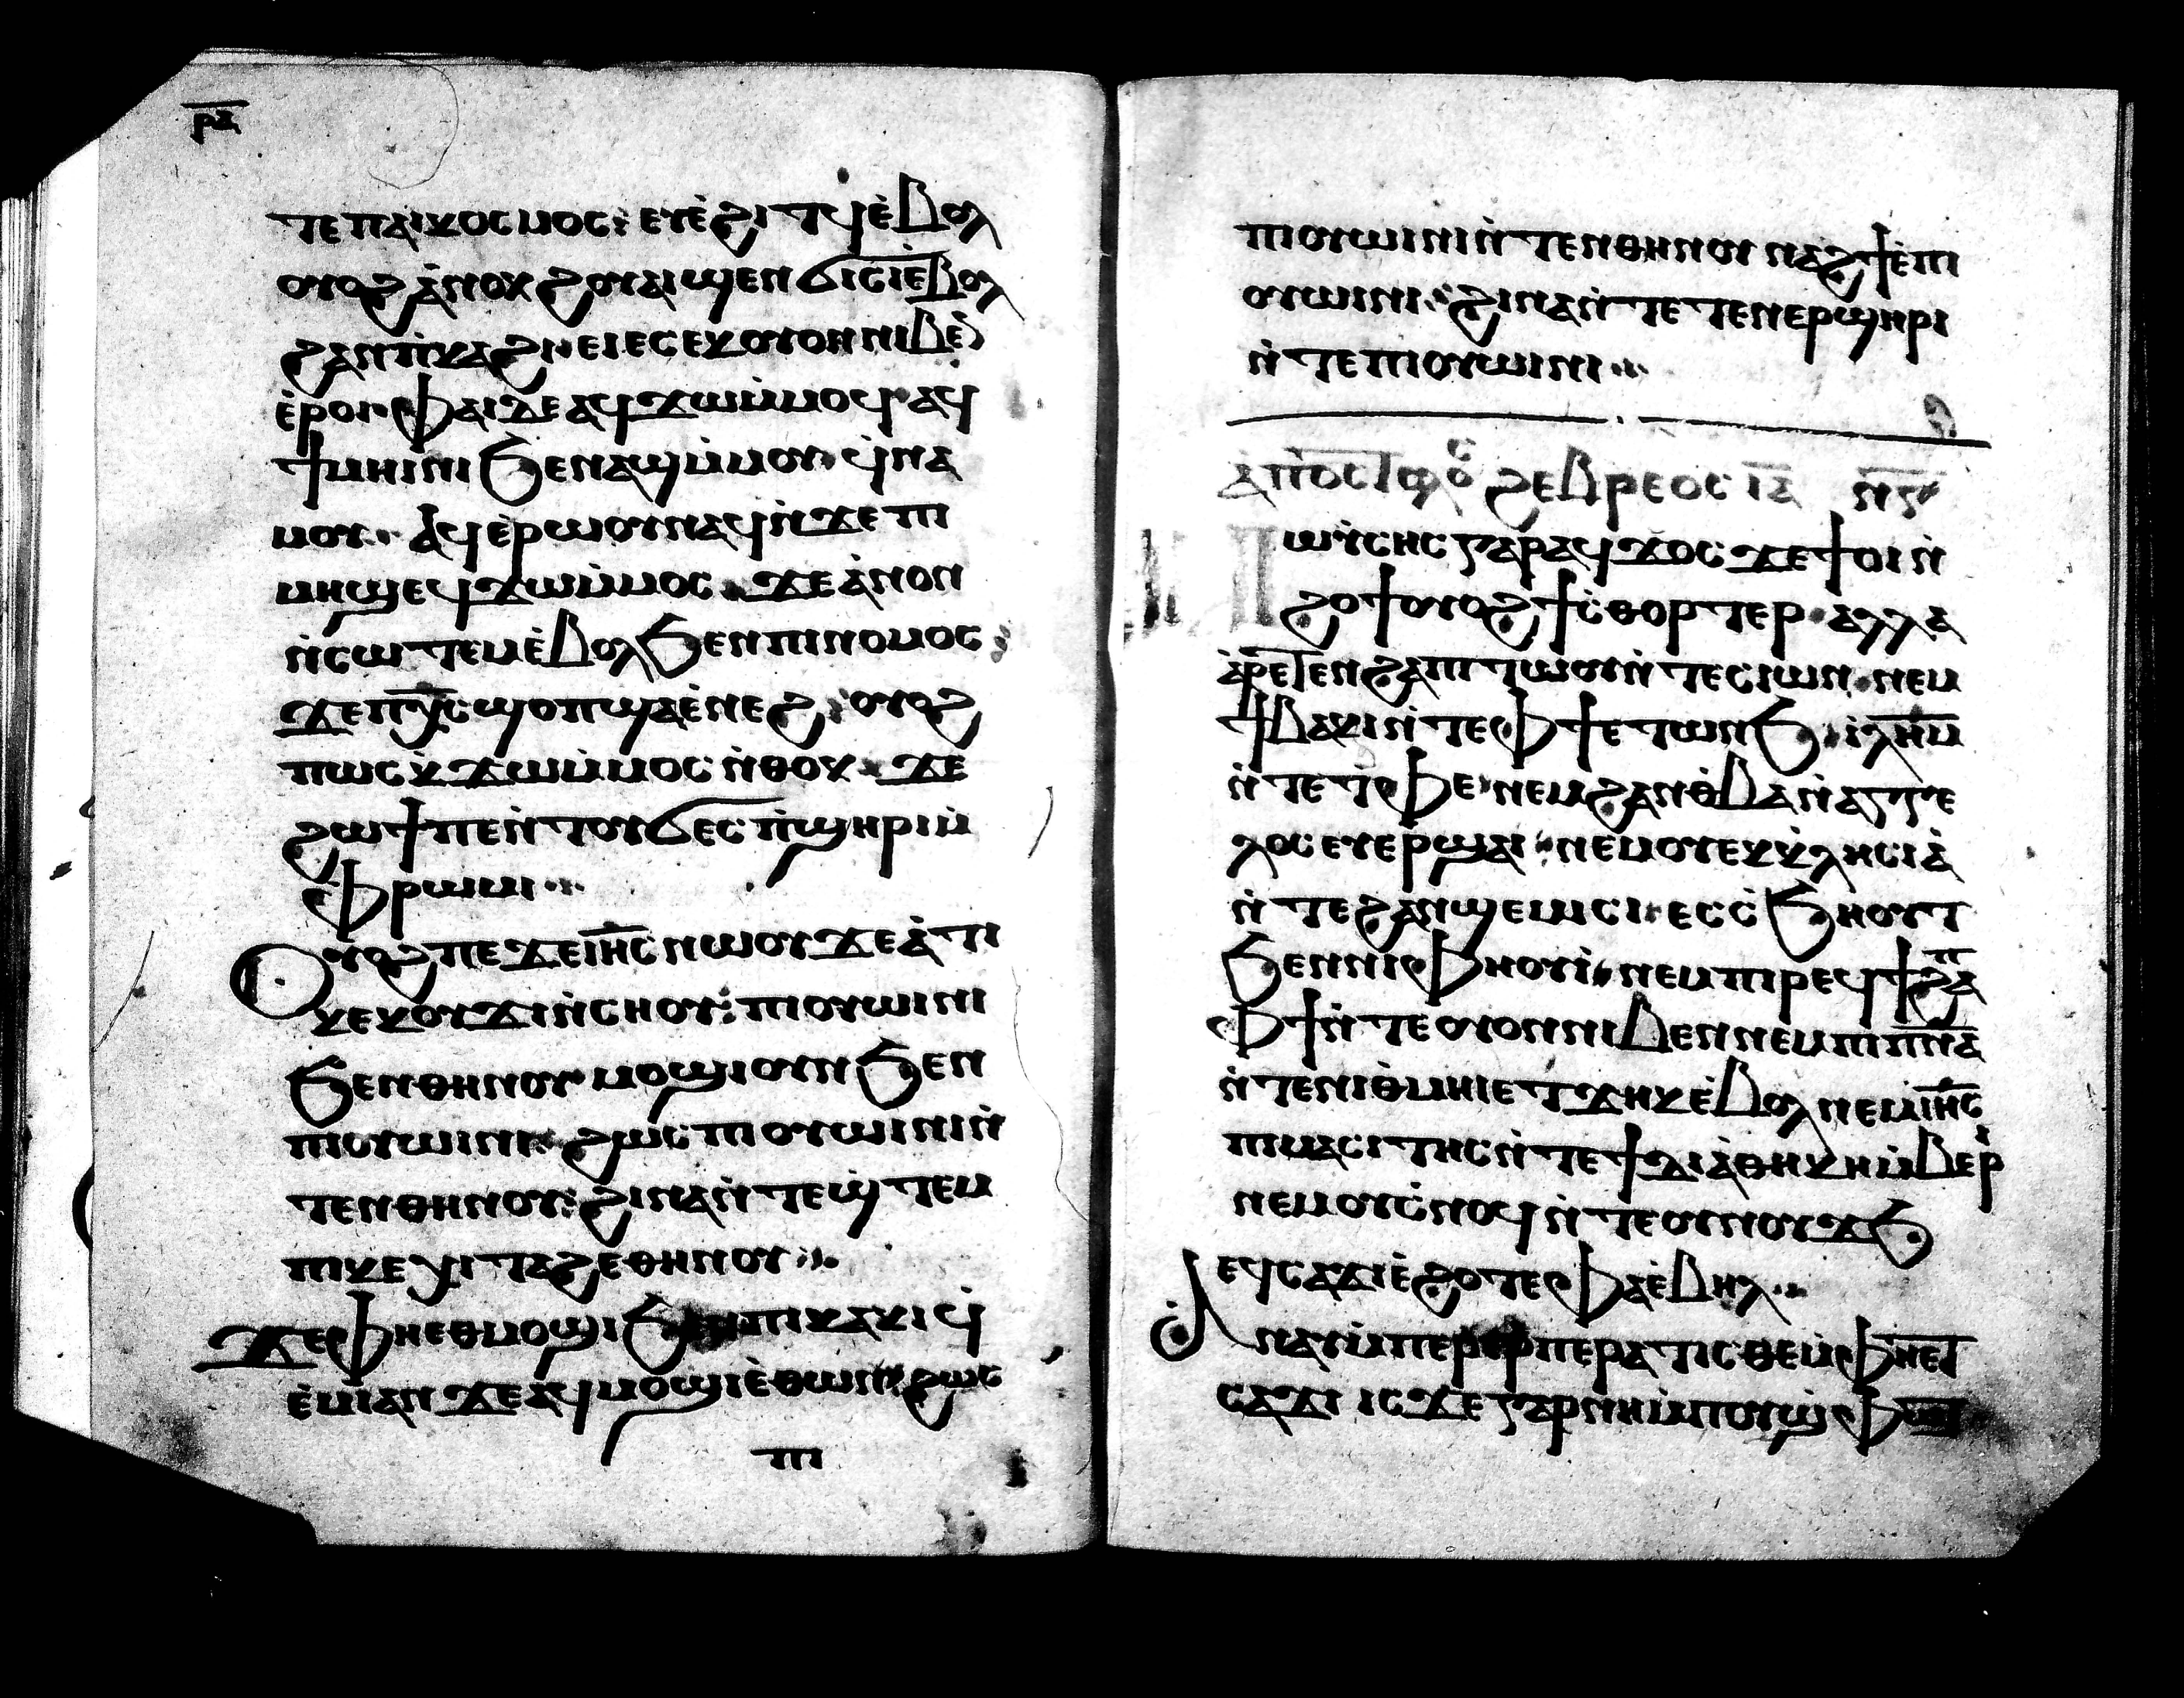 ⲣⲁ
ⲧⲉⲡⲁⲓⲕⲟⲥⲙⲟⲥ: ⲉⲩⲉ̀ϩⲓⲧϥⲉ̀ⲃⲟⲗ
ⲟⲩⲟϩ ⲁ̀ⲛⲟⲕ ϩⲱ ⲁⲓϣⲉⲛϭⲓⲥⲓⲉ̀ⲃⲟⲗ
ϩⲁⲡ̀ⲕⲁϩⲓ· ⲉⲓⲉⲥⲉⲕⲟⲩⲟⲛⲛⲓⲃⲉ̀
ⲉ̀ⲣⲟⲓ· ⲫⲁⲓⲇⲉ ⲁϥϫⲱⲙ̀ⲙⲟϥ ⲁϥ
ϯⲙⲏⲓⲛⲓ ϧⲉⲛⲁϣⲙ̀ⲙⲟⲩ ϥ̀ⲛⲁ
ⲙⲟⲩ·· ⲁϥⲉⲣⲱⲟⲩⲛⲁϥⲛ̀ϫⲉⲡⲓ
ⲙⲏϣ ⲉϥϫⲱⲙ̀ⲙⲟⲥ ϫⲉⲁ̀ⲛⲟⲛ
ⲛ̀ⲥⲱⲧⲉⲙⲉ̀ⲃⲟⲗϧⲉⲛⲡⲓⲛⲟⲙⲟⲥ
ϫⲉⲡⲭ̅ⲥ̅ϣⲟⲡϣⲁⲉ̀ⲛⲉϩ: ⲟⲩⲟϩ
ⲡⲱⲥⲕ̀ϫⲱⲙ̀ⲙⲟⲥ ⲛ̀ⲑⲟⲕ ϫⲉ
ϩⲱϯⲡⲉⲛ̀ⲧⲟⲩϭⲉⲥⲡ̀ϣⲏⲣⲓⲙ̀
ⲫⲣⲱⲙⲓ···
ⲟⲩⲟϩⲡⲉϫⲉⲓⲏ̅ⲥ̅ⲛⲱⲟⲩϫⲉⲁ̀ⲧⲓ
ⲕⲉⲕⲟⲩϫⲓⲛ̀ⲥⲏⲟⲩ: ⲡⲓⲟⲩⲱⲓⲛⲓ
ϧⲉⲛⲑⲏⲛⲟⲩ ⲙⲟϣⲓⲟⲩⲛϧⲉⲛ
ⲡⲓⲟⲩⲱⲓⲛⲓ ϩⲱⲥ ⲡⲓⲟⲩⲱⲓⲛⲓⲛ̀
ⲧⲉⲛⲑⲏⲛⲟⲩ: ϩⲓⲛⲁⲛ̀ⲧⲉϣ̀ⲧⲉⲙ
ⲡⲓⲭⲉⲭⲓⲧⲁϩⲉⲑⲏⲛⲟⲩ···
ϫⲉⲫⲏⲉⲑⲙⲟϣⲓϧⲉⲛⲡⲓⲭⲁⲕⲓϥ̀
ⲉ̀ⲙⲓⲁⲛϫⲉⲁϥⲙⲟϣⲓⲉ̀ⲑⲱⲛ ϩⲱⲥ
ⲡⲓ
ⲡⲓⲟⲩⲱⲓⲛⲓⲛ̀ⲧⲉⲛⲑⲏⲛⲟⲩ ⲛⲁϩϯⲉ̀ⲡⲓ
ⲟⲩⲱⲓⲛⲓ: ϩⲓⲛⲁⲛ̀ⲧⲉⲧⲉⲛⲉⲣϣⲏⲣⲓ
ⲛ̀ⲧⲉⲡⲓⲟⲩⲱⲓⲛⲓ···
ϩⲉⲃⲣⲉⲟⲥ ⲓ̅ⲁ̅
ⲙⲱⲩⲥⲏⲥ ⲅⲁⲣ ⲁϥϫⲟⲥ ϫⲉϯⲟⲓⲛ̀
ϩⲟϯⲟⲩⲟϩϯⲥ̀ⲑⲟⲣⲧⲉⲣ· ⲁⲗⲗⲁ
ⲁ̀ⲣⲉⲧⲉⲛϩⲁⲡⲓⲧⲱⲟⲩⲛ̀ⲧⲉⲥⲓⲱⲛ ⲛⲉⲙ
ϯⲃⲁⲕⲓⲛ̀ⲧⲉⲫϯⲉⲧⲱⲛϧ ⲓ̀ⲗ̅ⲏ̅ⲙ̅
ⲛ̀ⲧⲉⲧⲫⲉ ⲛⲉⲙϩⲁⲛⲑ̀ⲃⲁⲛ̀ⲁⲅⲅⲉ
ⲗⲟⲥⲉⲩⲉⲣϣⲁⲓ ⲛⲉⲙⲟⲩⲉⲕⲕ̀ⲗⲏⲥⲓⲁ̀
ⲛ̀ⲧⲉϩⲁⲛϣⲉⲙⲓⲥⲓ ⲉⲥⲥ̀ϧⲏⲟⲩⲧ
ϧⲉⲛⲛⲓⲫⲏⲟⲩⲓ̀ ⲛⲉⲙⲡⲓⲣⲉϥϯϩⲁⲡ
ⲫϯⲛ̀ⲧⲉⲟⲩⲟⲛⲛⲓⲃⲉⲛⲛⲉⲙⲡⲓⲡ̅ⲛ̅ⲁ̅
ⲛ̀ⲧⲉⲛⲓⲑ̀ⲙⲏⲓⲉⲧϫⲏⲕⲉ̀ⲃⲟⲗ ⲛⲉⲙⲓⲏ̅ⲥ̅
ⲡⲓⲙⲁⲥⲓⲧⲏⲥⲛ̀ⲧⲉϯⲇⲓⲁ̀ⲑⲏⲕⲏⲙ̀ⲃⲉⲣⲓ
ⲛⲉⲙⲟⲩⲥ̀ⲛⲟϥⲛ̀ⲧⲉⲟⲩⲛⲟⲩϫϧ
ⲉϥⲥⲁϫⲓⲉ̀ϩⲟⲧⲉⲫⲁⲉ̀ⲃⲏⲗ··
ⲁⲛⲁⲩⲙ̀ⲡⲉⲣⲉⲣⲡⲉⲣⲁⲧⲓⲥⲑⲉⲙ̀ⲫⲏⲉⲧ
ⲥⲁϫⲓ ⲓⲥϫⲉⲅⲁⲣⲛⲏⲙ̀ⲡⲟⲩϣ̀ⲫⲱⲧ